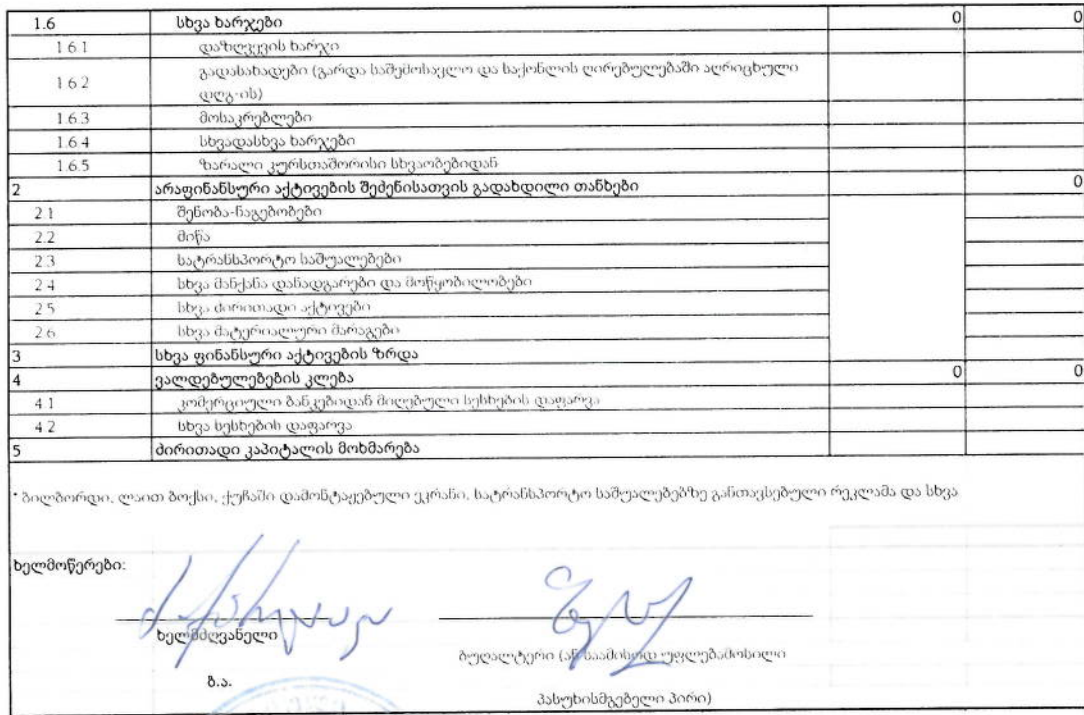 1.6 სხვა ხარჯები 0 0
1.6.1 დაზღვევის ხარჯი
1.6.2 გადასახადები (გარდა საშემოსავლო და საქონლის ღირებულებაში აღრიცხული
დღგ-ის)
1.6.3 მოსაკრებლები
1.6.4 სხვადასხვა ხარჯები
1.6.5 ზარალი კურსთაშორისი სხვაობებიდან
2 არაფინანსური აქტივების შეძენისათვის გადახდილი თანხები 0
2.1 შენობა-ნაგებობები
2.2 მიწა
2.3 სატრანსპორტო საშუალებები
2.4 სხვა მანქანა დანადგარები და მოწყობილობები
2.5 სხვა ძირითადი აქტივები
2.6 სხვა მატერიალური მარაგები
3 სხვა ფინანსური აქტივების ზრდა
4 ვალდებულებების კლება 0 0
4.1 კომერციული ბანკებიდან მიღებული სესხების დაფარვა
4.2 სხვა სესხების დაფარვა
5 ძირითადი კაპიტალის მოხმარება
* ბილბორდი, ლაით ბოქსი, ქუჩაში დამონტაჟებული ეკრანი, სატრანსპორტო საშუალებებზე განთავსებული რეკლამა და სხვა
ხელმოწერები:
ხელმძღვანელი
ბუღალტერი (ან საამისოდ უფლებამოსილი
ბ.ა.
პასუხისმგებელი პირი)